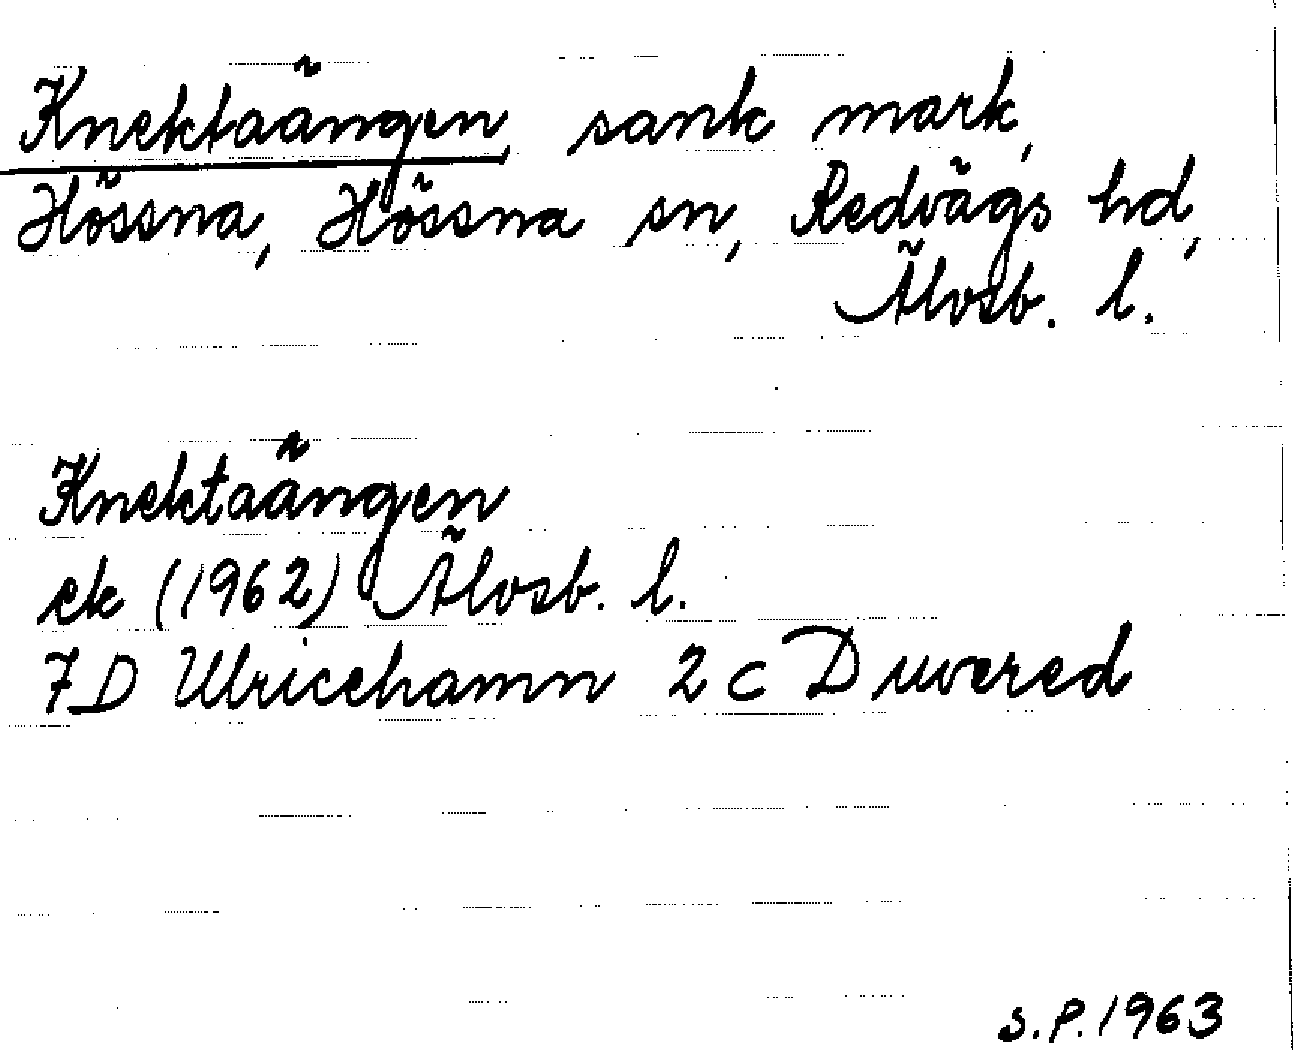 Knektaängen, sank mark,
Hössna, Hössna sn, Redvägs hd,
Älvsb. l.
Knektaängen
ek (1962) Älvsb. l.
7D Ulricehamn 2 c Duvered
S.P. 1963